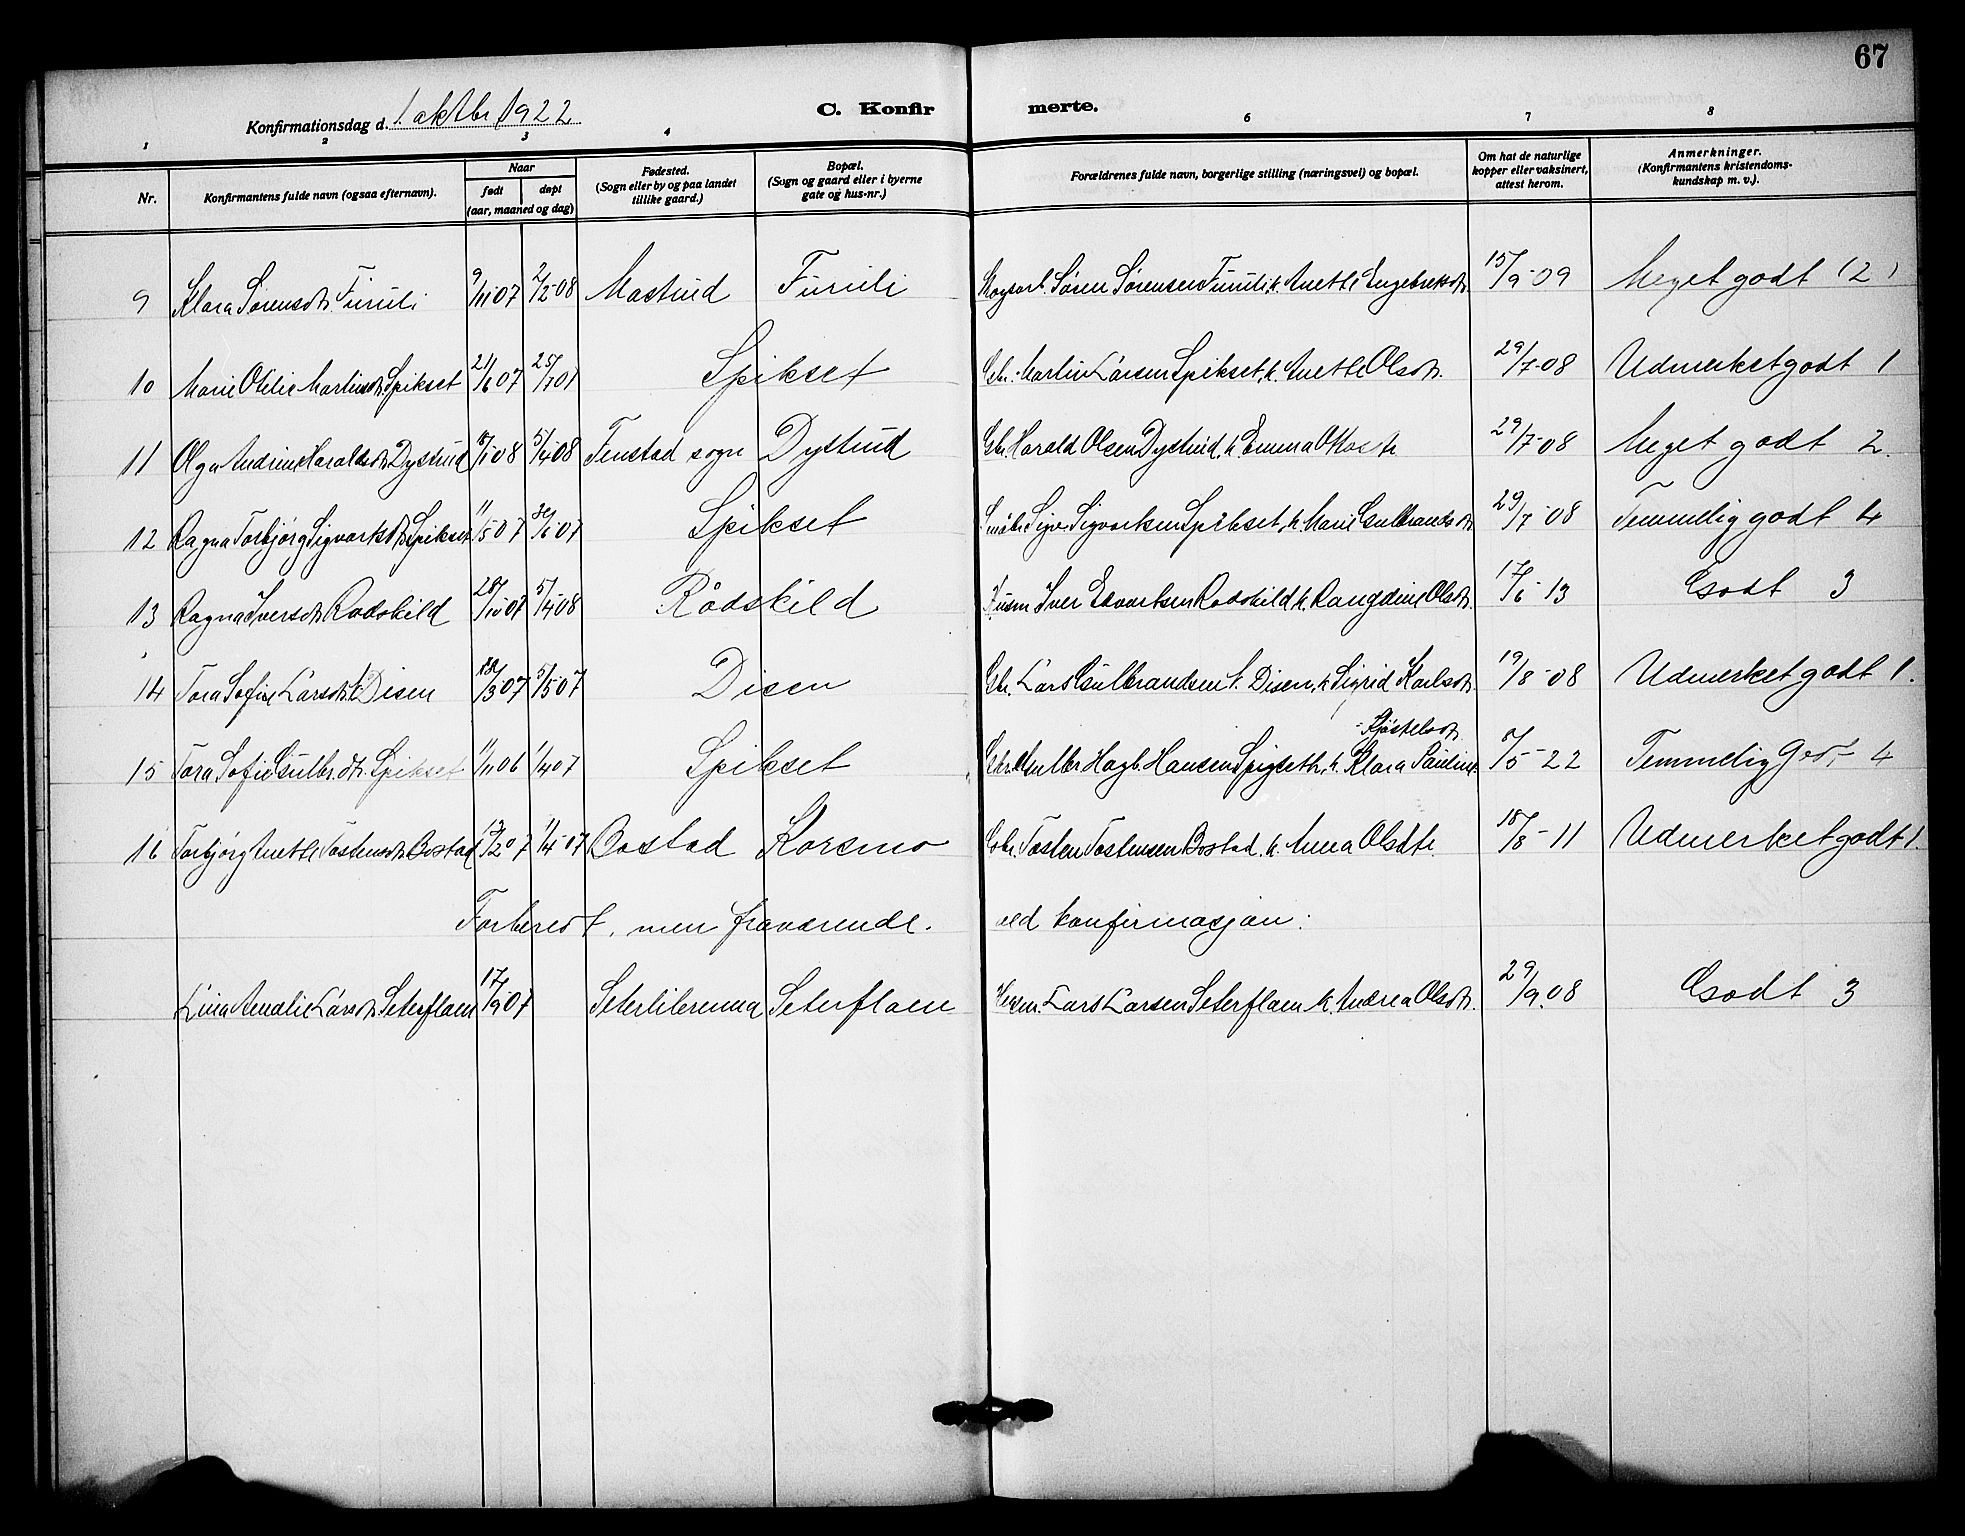 67
Konfirmationsdag d. 1 oktbr 1922
C. Konfirmerte.
1 2 3 4 6 7 8
Nr.
Konfirmantens fulde navn (ogsaa efternavn).
Naar
født
døpt
(aar, maaned og dag)
Fødested.
(Sogn eller by og paa landet
tillike gaard.)
Bopæl.
(Sogn og gaard eller i byerne
gate og hus-nr.)
Forældrenes fulde navn, borgerlige stilling (næringsvei) og bopæl.
Om hat de naturlige
kopper eller vaksinert,
attest herom.
Anmerkninger.
(Konfirmantens kristendoms-
kundskap m. v.).
9 Klara Sørensdtr. Furuli 9/11 07 2/2-08 Mastuid Furuli Søren Sørensen Furuli, h. Anette Engebretsdtr. 15/9-09 Meget godt (2)
10 Marie Otilie Martinsdtr. Spikset 21/6 07 25/7 07 Spikset Gbr. Martin Larsen Spikset, h. Anette Olsdtr. 29/7-08 Udmerket godt 1
11 Olga Andrine Haraldsdtr. Dystuid /1 08 5/4 08 Fenstad sogn Dystuid Gbr. Harald Olsen Dystuid, h. Emma 29/7-08 Meget godt 2.
12 Ragna Torbjørg Sigvartsdtr. Spikset 11/5 07 30/6 07 Spikset Sigvartsen Spikset, h. Marie Gulbrandsdtr. 29/7-08 Temmelig godt 4
13 Ragna Iversdtr. Rødskild 28/10 07 5/4 08 Rødskild Husm. Iver Edvartsen Rødskild h. Rangdine Olsdtr. 17/6-13 Godt 3
14 Tora Sofie Larsdtr. Disen /3 07 5/5-07 Disen Gbr. Lars Gulbrandsen Disen, h. Sigrid Karlsdtr. 19/8-08 Udmerket godt 1.
Kjøstelsdtr.
15 Tora Sofie Gulbr.dtr. Spikset 11/11 06 1/4 07 Spikset Gbr. Gulbr. Hagb. Hansen Spigseth, h. Klara Pauline 8/5-22 Temmelig godt 4
16 Torbjørg Anette Tostensdtr. Bostad /2 07 1/4-07 Bostad Korsmo Gbr. Tosten Tostensen Bostad h. Anna Olsdtr. 18/8-11 Udmerket godt 1.
Forberedt, men fraværende. ved konfirmasjon:
Lina Amalie Larsdtr. Seterflaen 17/9 07 Seterliberenna Seterflaen Lars Larsen Seterflaen h. Andrea Olsdtr. 29/9.08 Godt 3